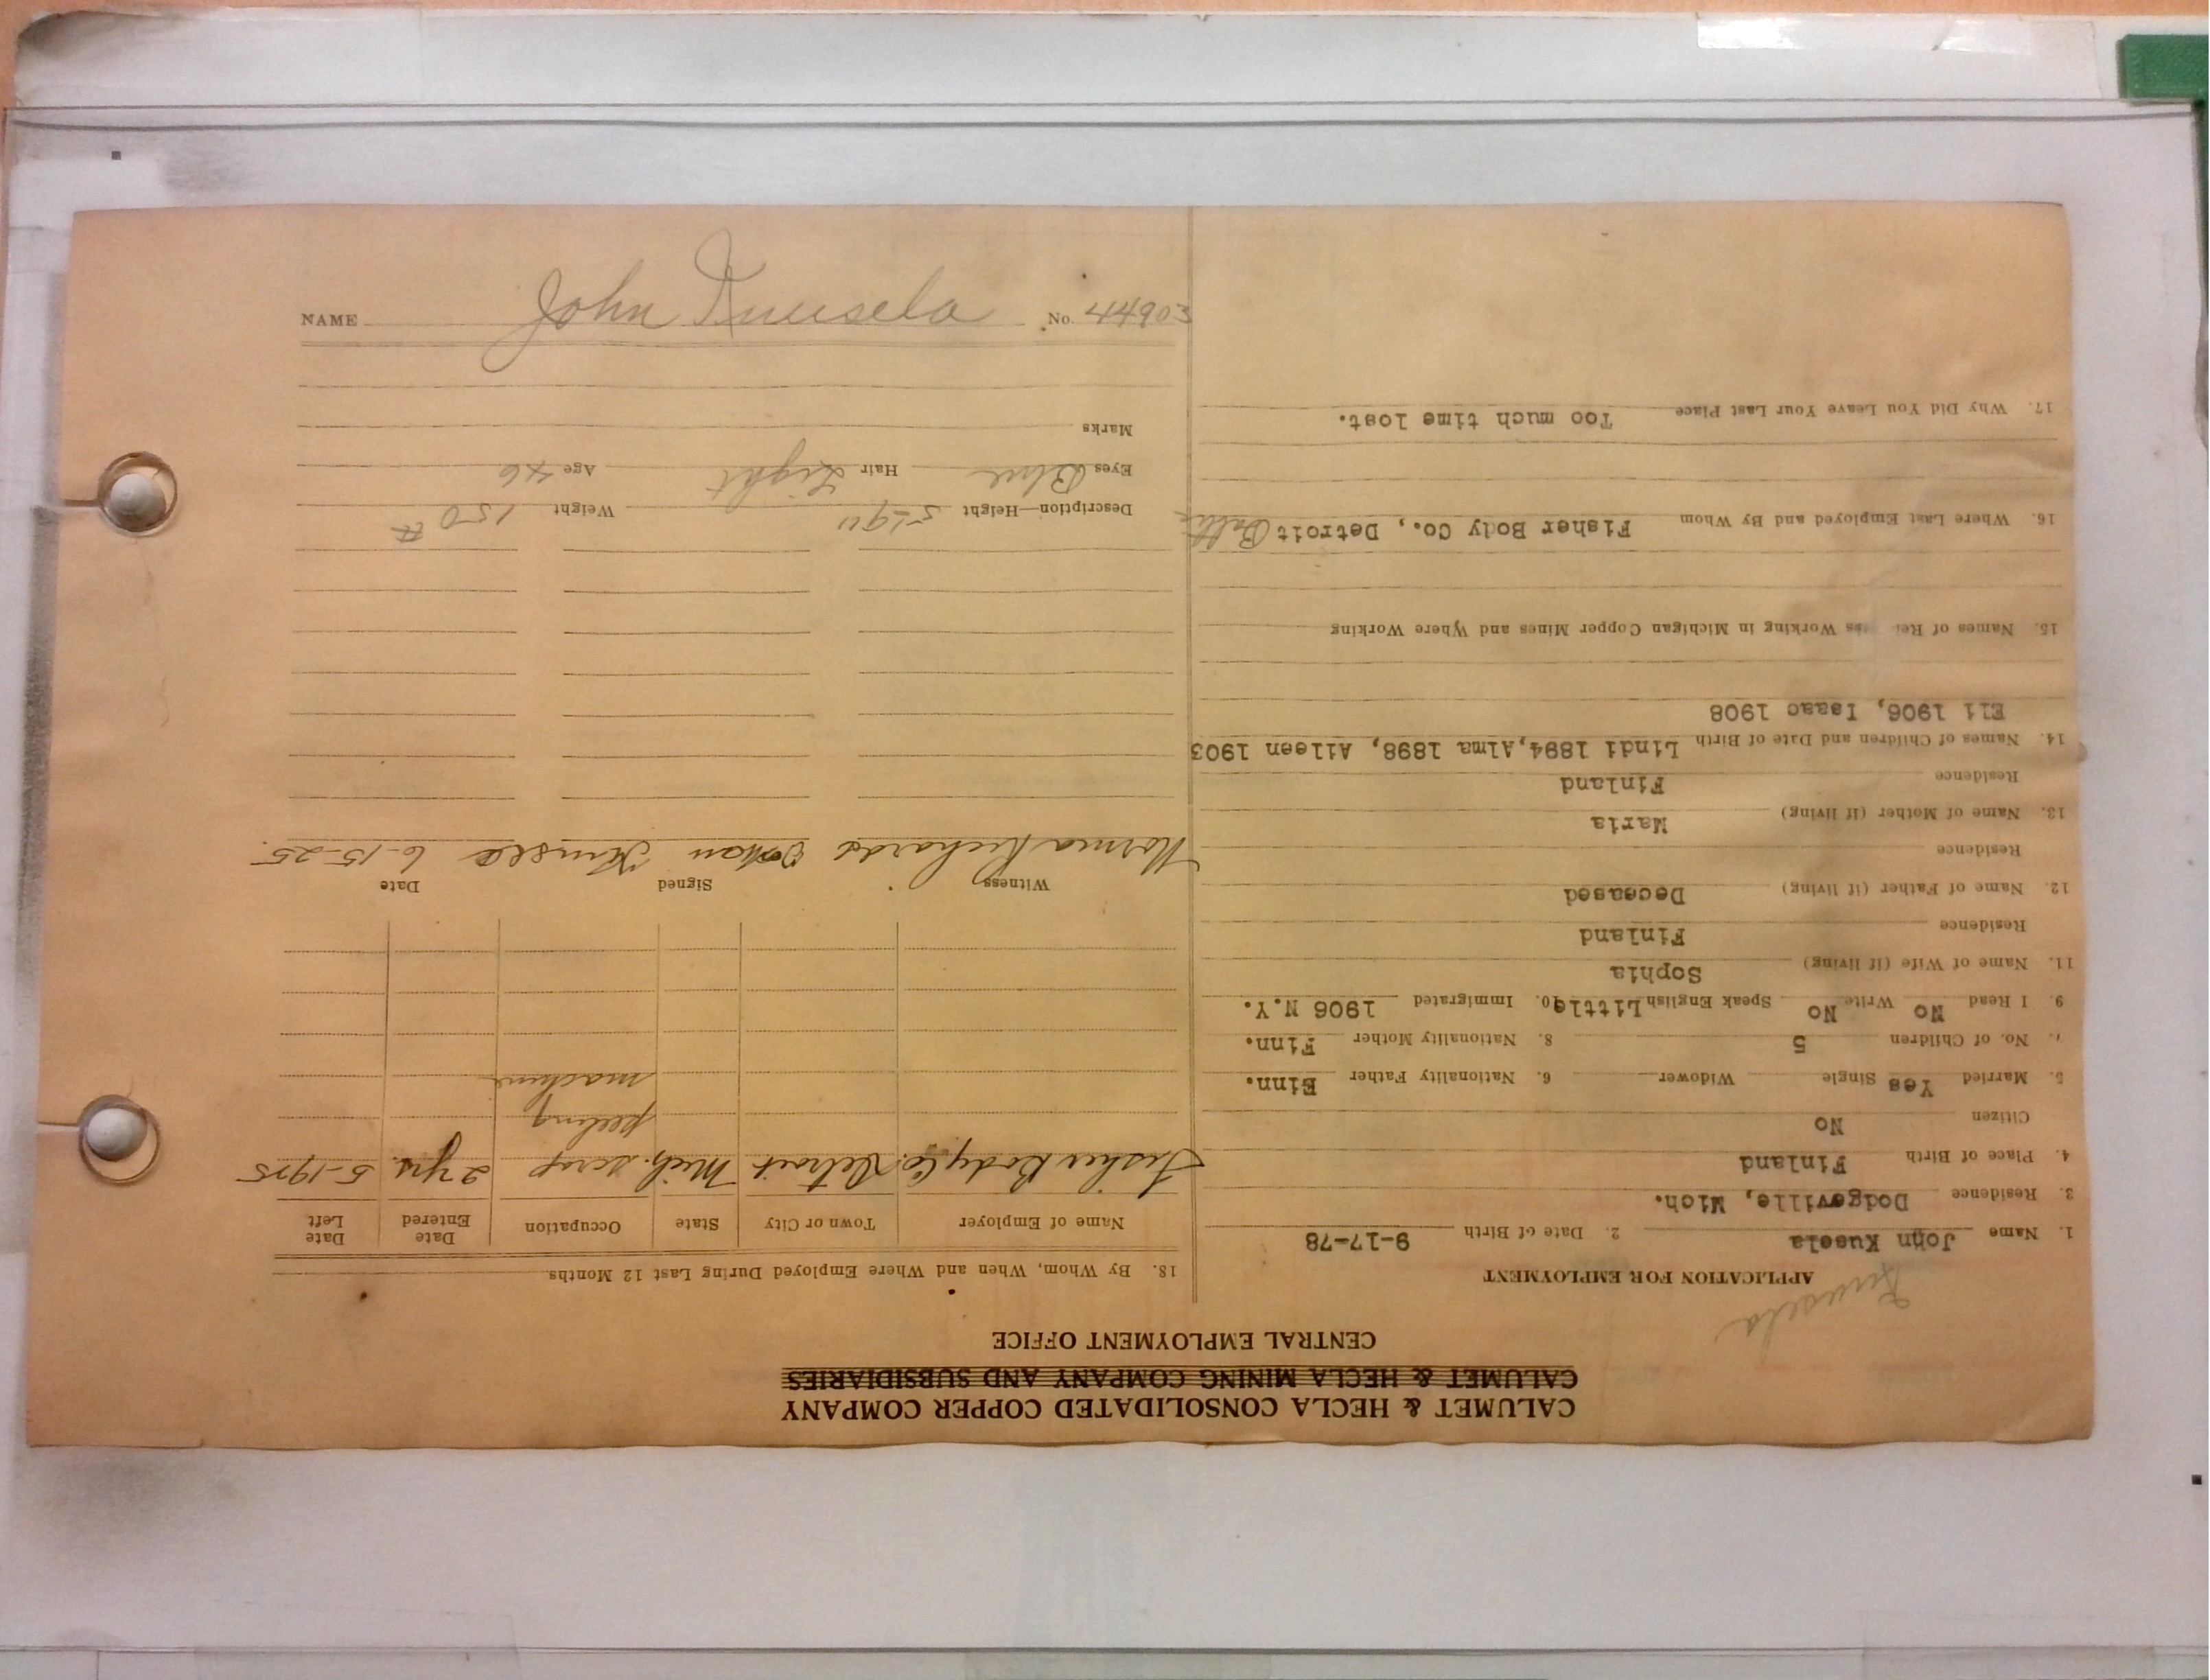 CALUMET & HECLA CONSOLIDATED COPPER COMPANY
CALUMET & HECLA MINING COMPANY AND SUBSIDIARIES
CENTRAL EMPLOYMENT OFFICE
APPLICATION FOR EMPLOYMENT
1. Name John Kusela 2. Date of Birth 9-17-78
3. Residence Dodgeville, Mich.
4. Place of Birth Finland
Citizen No
5. Married Yes Single Widower 6. Nationality Father Finn.
7. No. of Children 5 8. Nationality Mother Finn.
9. I Read No Write No Speak English Little 10. Immigrated 1906 N.Y.
11. Name of Wife (if living) Sophia
Residence Finland
12. Name of Father (if living) Deceased
Residence
13. Name of Mother (if living) Maria
Residence Finland
14. Names of Children and Date of Birth Lindi 1894, Alma 1898, Aileen 1903
Eli 1906, Isaac 1908
15. Names of Working in Michigan Copper Mines and Where Working
16. Where Last Employed and By Whom Fisher Body Co., Detroit
17. Why Did You Leave Your Last Place Too much time lost.
18. By Whom, When and Where Employed During Last 12 Months
Name of Employer Town or City State Occupation Date Entered Date Left
Fisher Body Co. Detroit Mich. scrap 2 yrs. 5-1925
peeling
machine
Witness Signed Date
Norma Richards 6-15-25
Description—Height 5-9" Weight 150 #
Eyes Blue Hair Light Age 46
Marks
NAME John Kuusela No. 44903